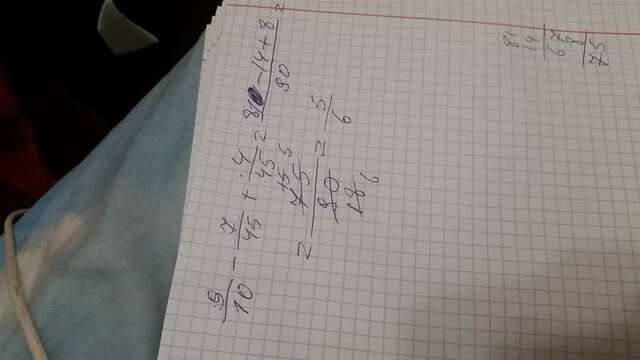 9/10 - 7/45 + 4/45 = 81-14+8/90 =
= 75/90 = 5/6
15 5
18 6
81
14
67
8
75